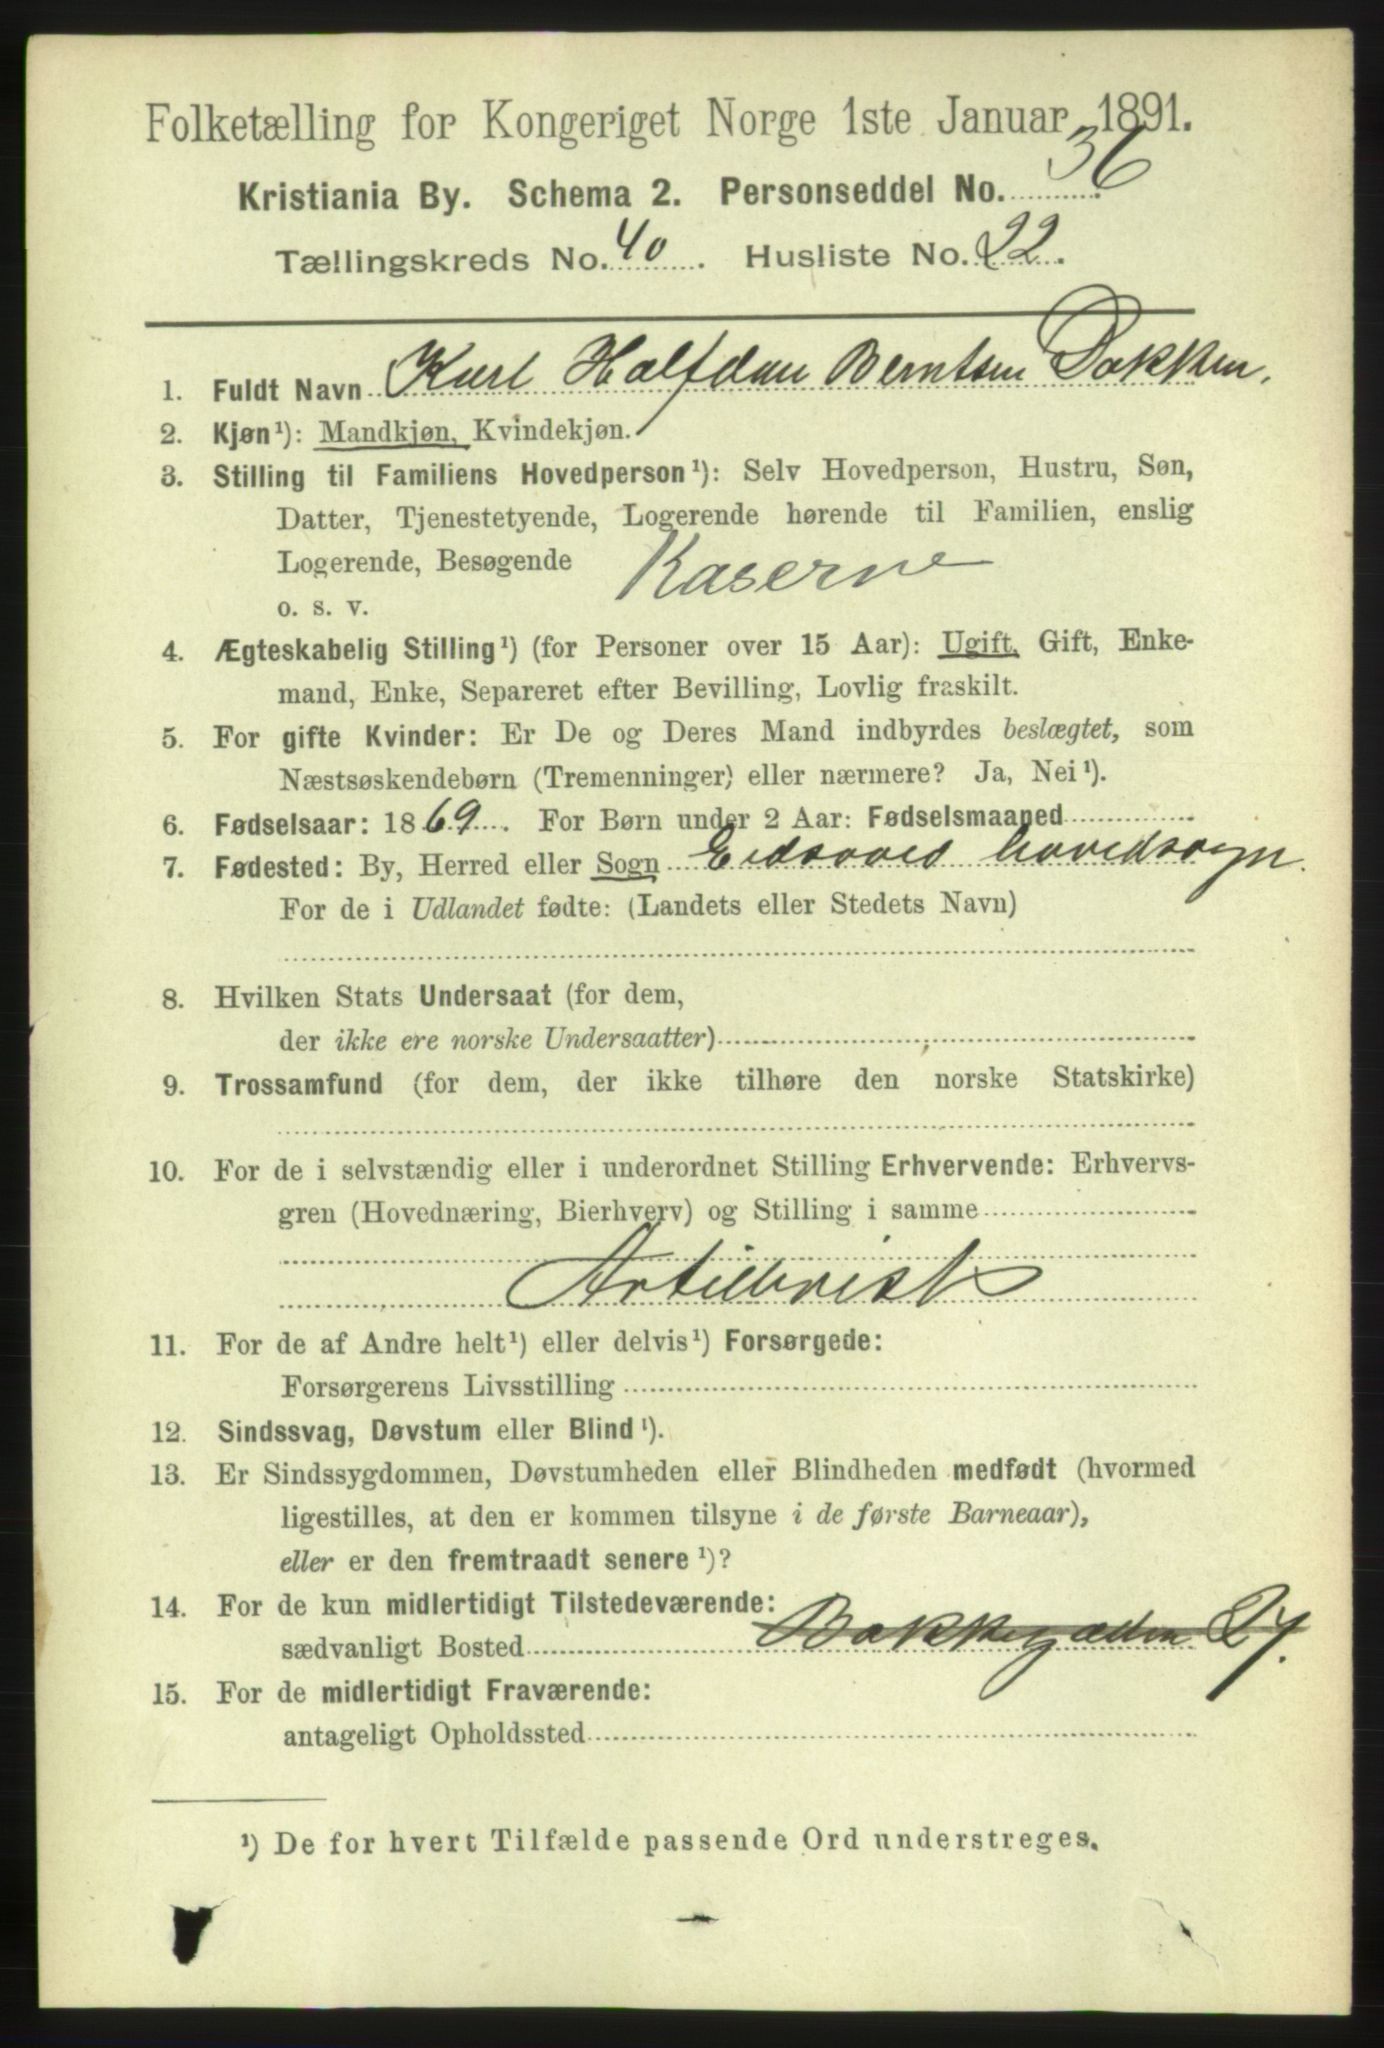 Folketælling for Kongeriget Norge 1ste Januar 1891.
Kristiania By. Schema 2. Personseddel No. 36
Tællingskreds No. 40. Husliste No. 22.
1. Fuldt Navn Karl Halfdan Berntsen Dakken.
2. Kjøn¹): Mandkjøn, Kvindekjøn.
3. Stilling til Familiens Hovedperson¹): Selv Hovedperson, Hustru, Søn,
Datter, Tjenestetyende, Logerende hørende til Familien, enslig
Logerende, Besøgende Kaserne
o. s. v.
4. Ægteskabelig Stilling¹) (for Personer over 15 Aar): Ugift, Gift, Enke-
mand, Enke, Separeret efter Bevilling, Lovlig fraskilt.
5. For gifte Kvinder: Er De og Deres Mand indbyrdes beslægtet, som
Næstsøskendebørn (Tremenninger) eller nærmere? Ja, Nei¹).
6. Fødselsaar: 1869. For Børn under 2 Aar: Fødselsmaaned
7. Fødested: By, Herred eller Sogn Eidsvold hovedsogn.
For de i Udlandet fødte: (Landets eller Stedets Navn)
8. Hvilken Stats Undersaat (for dem,
der ikke ere norske Undersaatter)
9. Trossamfund (for dem, der ikke tilhøre den norske Statskirke)
10. For de i selvstændig eller i underordnet Stilling Erhvervende: Erhvervs-
gren (Hovednæring, Bierhverv) og Stilling i samme
Artillerist
11. For de af Andre helt¹) eller delvis¹) Forsørgede:
Forsørgerens Livsstilling
12. Sindssvag, Døvstum eller Blind¹).
13. Er Sindssygdommen, Døvstumheden eller Blindheden medfødt (hvormed
ligestilles, at den er kommen tilsyne i de første Barneaar),
eller er den fremtraadt senere¹)?
14. For de kun midlertidigt Tilstedeværende:
sædvanligt Bosted Bakkegaden 27.
15. For de midlertidigt Fraværende:
antageligt Opholdssted
¹) De for hvert Tilfælde passende Ord understreges.